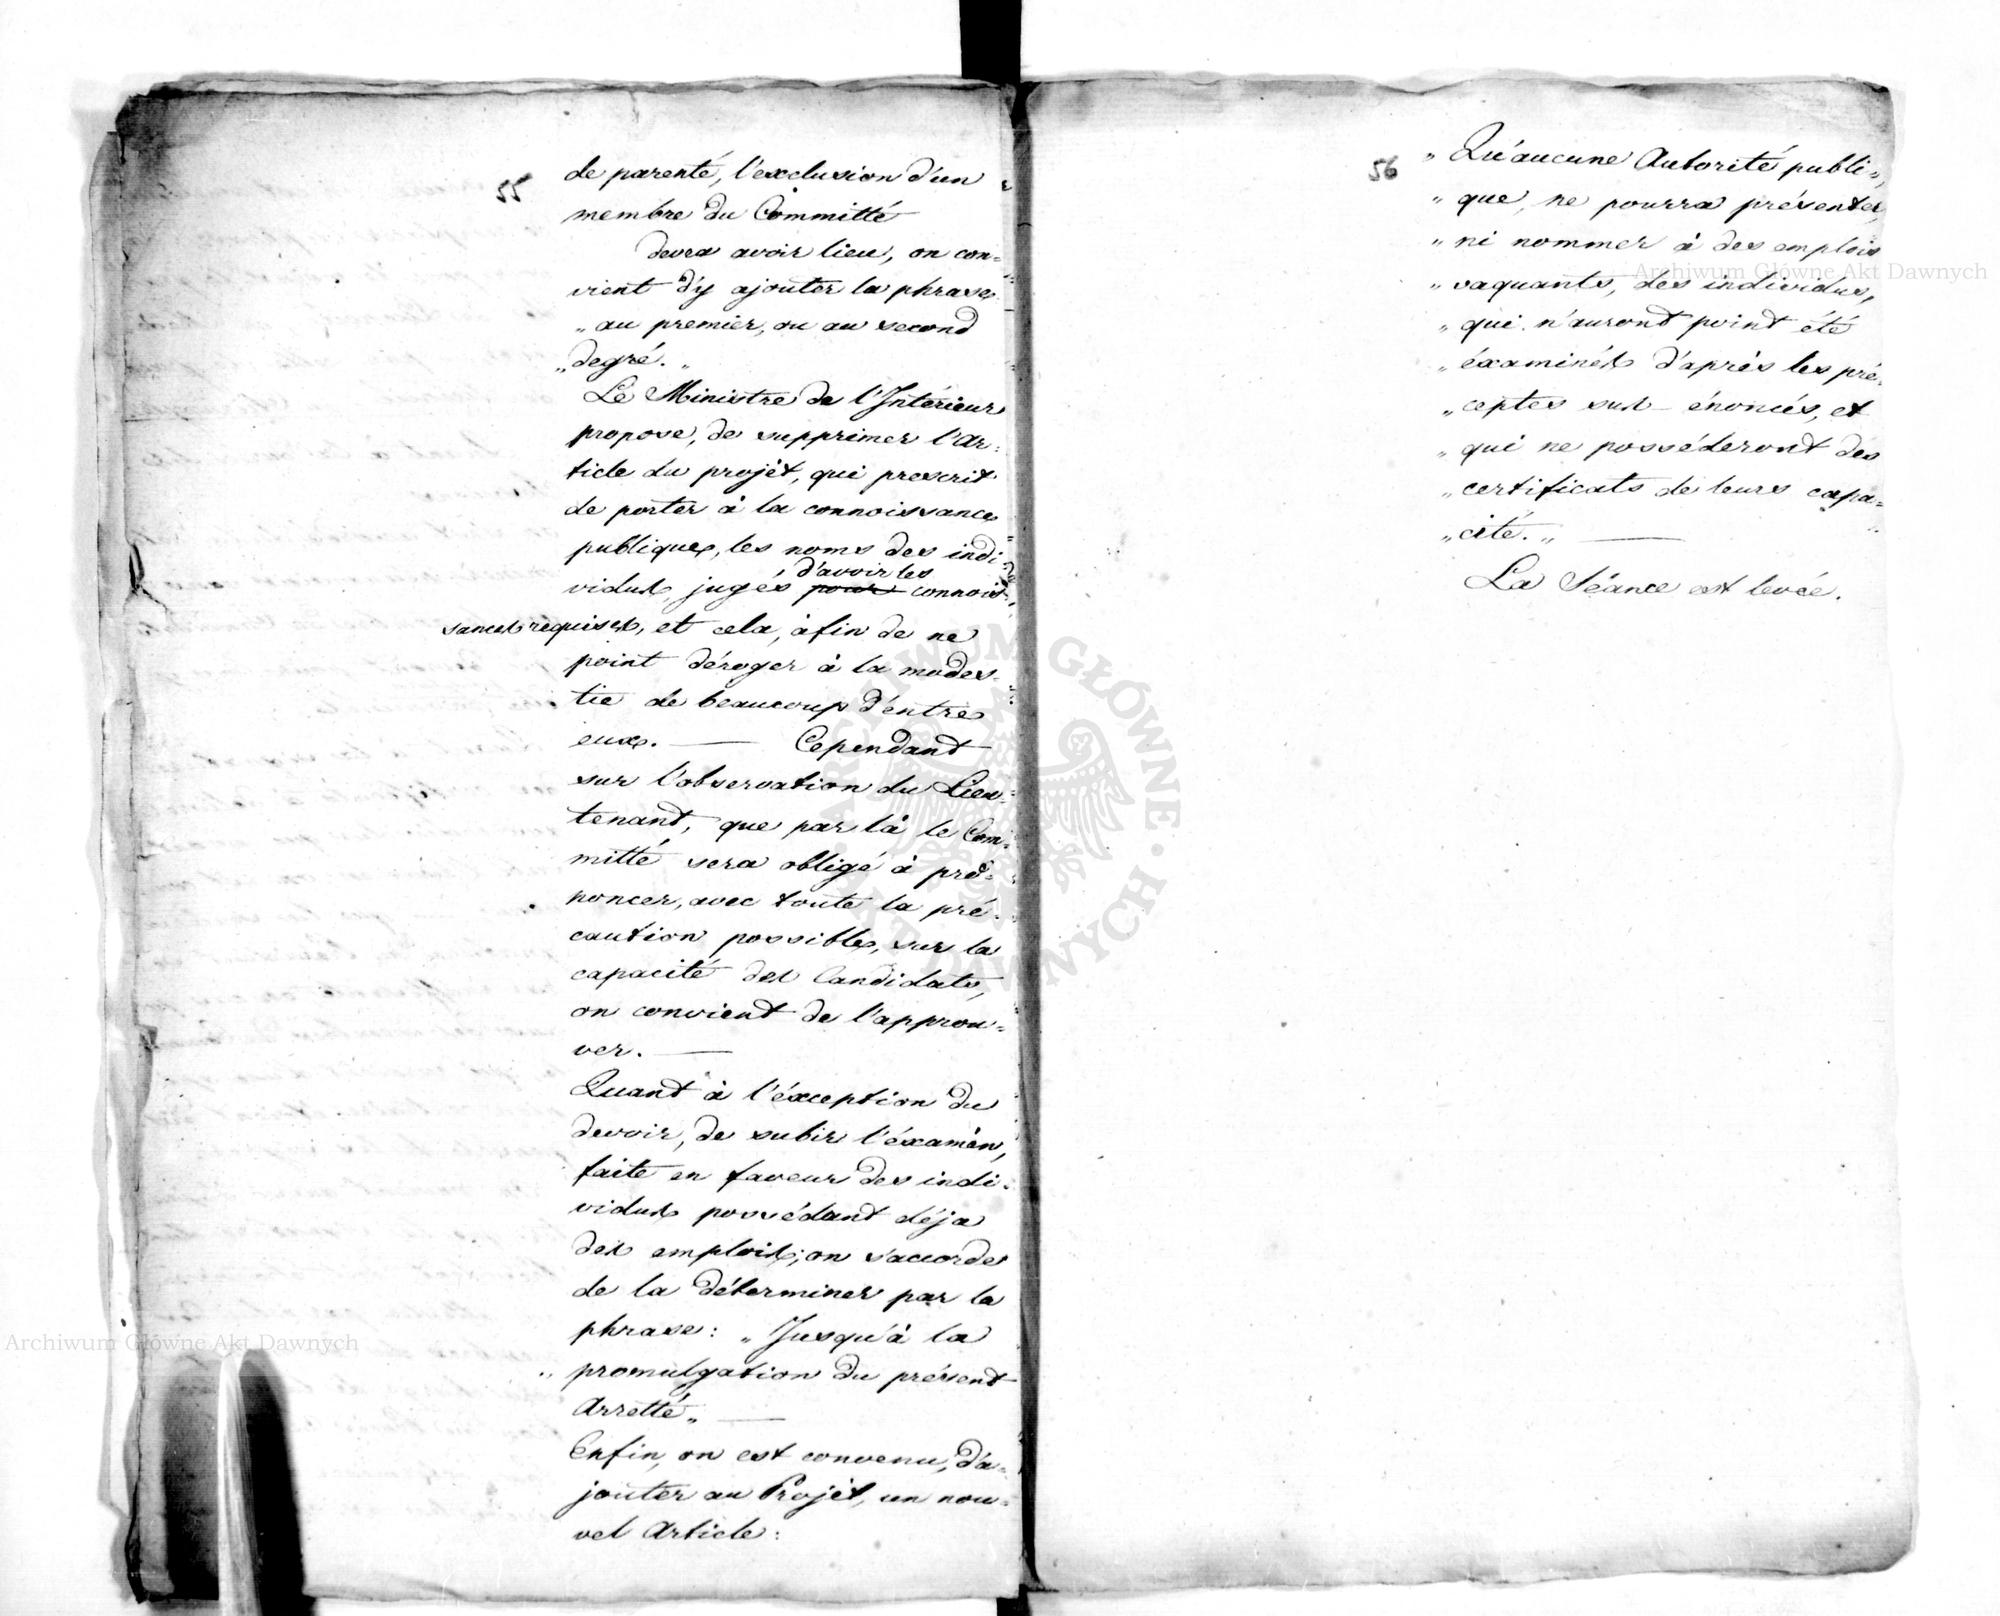 55
de parenté, l'exclusion d'un
membre du Committé
devra avoir lieu, on con-
vient d'y ajouter la phrase
„ au premier, ou au second
„ degré. „
Le Ministre de l'Intérieur
propose, de supprimer l'Ar-
ticle du projèt, qui prescrit
de porter à la connoissance
publique, les noms des indi-
vidus, jugés pour d'avoir les connois-
sances requises, et cela, àfin de ne
point déroger à la modes-
tie de beaucoup d'entre
eux. — Cependant
sur l'observation du Lieu-
tenant, que par là le Com-
mitté sera obligé à pro-
noncer, avec toute la pré-
caution possible, sur la
capacité des Candidats,
on convient de l'approu-
ver. —
Quant à l'éxception du
devoir, de subir l'éxamèn,
faite en faveur des indi-
vidus possédant déja
des emplois; on s'accorde
de la déterminer par la
phrase: „ Jusqu'à la
„ promulgation du présent
Arretté „ —
Enfin, on est convenu, d'a-
jouter au Projèt, un nou-
vel Article:
56
„ Qu'aucune Autorité publi-
„ que, ne pourra présenter,
„ ni nommer à des emplois
„ vaquants, des individus,
„ qui n'auront point été
„ éxaminés d'après les pré-
„ ceptes sus-énoncés, et
„ qui ne posséderont des
„ certificats de leurs capa-
„ cité. „ —
La Séance est levée.
Archiwum Główne Akt Dawnych
Archiwum Główne Akt Dawnych
ARCHIWUM GŁÓWNE AKT DAWNYCH